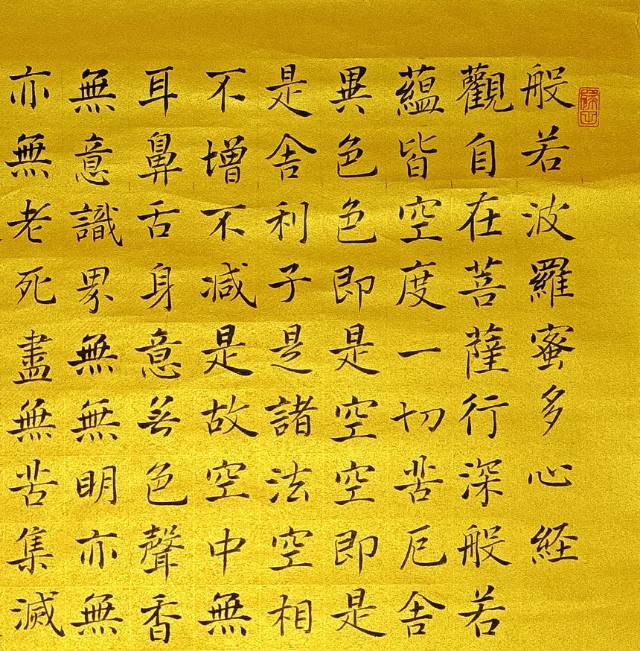 般若波羅蜜多心経
觀自在菩薩行深般若
蘊皆空度一切苦厄舍
異色色即是空空即是
是舍利子是諸法空相
不增不減是故空中無
耳鼻舌身意无色聲香
無意識界無無明亦無
亦無老死盡無苦集滅